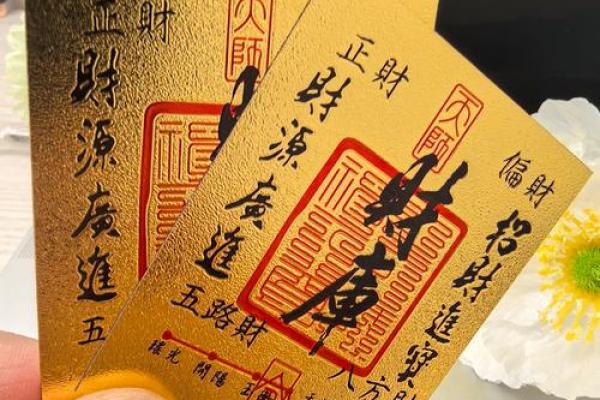 正財
財源廣進
五
天師
正財
財源廣進
五路財
天師
財庫
偏財
招財進寶
八方財
祿光
開陽
玉